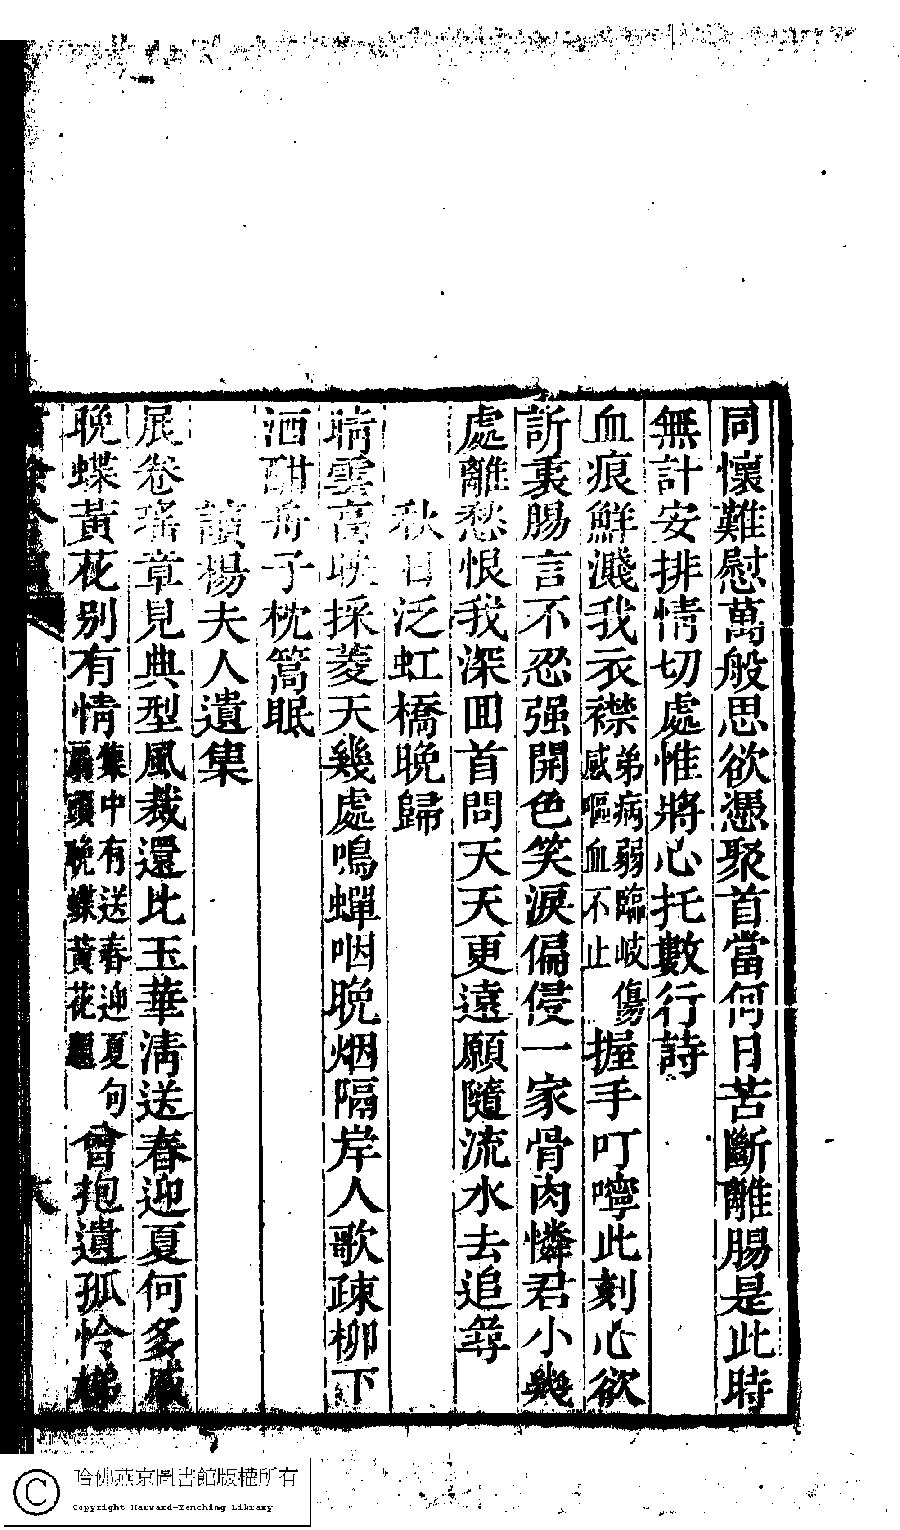 同懷難慰萬般思欲憑聚首當何日苦斷離腸是此時
無計安排情切處惟將心托數行詩
血痕鮮濺我衣襟弟病弱臨岐傷感嘔血不止握手叮嚀此刻心欲
訢裏腸言不忍强開色笑淚偏侵一家骨肉憐君小幾
處離愁恨我深囬首問天天更遠願隨流水去追尋
秋日泛虹橋晚歸
晴雲高映採菱天幾處鳴蟬咽晚烟隔岸人歌疎柳下
酒酣舟子枕篙眠
讀楊夫人遺集
展卷瑤章見典型風裁還比玉華清送春迎夏何多感
晚蝶黃花别有情集中有送春迎夏句扇頭晚蝶黃花題曾抱遺孤怜
哈佛燕京圖書館版權所有
Copyright Harvard-Yenching Library